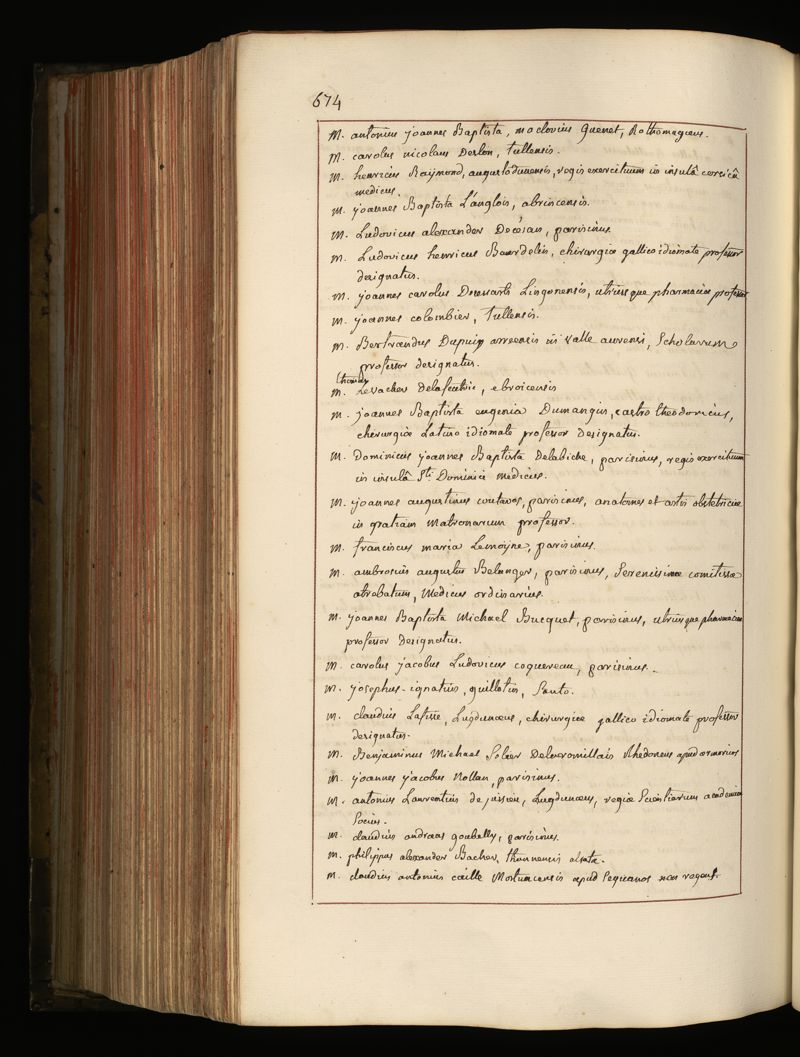 674
M. antonius joannes Baptista, maclovius Guenet, Rothomagæus.
M. carolus nicolaus Derlon, tullensis.
M. henricus Raÿmond, augustodunensis, regis exercituum in insulâ corsicâ
medicus.
M. joannes Baptista L'anglois, abrincensis.
M. Ludovicus alexander Decésan, parisinus.
M. Ludovicus henricus Bourdelin, chirurgiæ gallico idiomate professor
designatus.
M. joannes carolus Desessartz Lingonensis, utriusque pharmaciæ professor
M. joannes colombier, tullensis.
M. Bertrandus Dupuy arreensis in valle aurensi, Scholarum
professor designatus.
thomas
M. Levacher Delafeutrie, ebroicensis
M. joannes Baptista eugenia Dumangin, castro theodoricus,
chirurgiæ Latino idiomate professor designatus.
M. Dominicus joannes Baptista Delabiche, parisinus, regis exercituum
in insulâ Sti. Dominici medicus.
M. joannes augustinus coutavos, parisinus, anatomes et artis obstetriciæ
in gratiam Matronarum professor.
M. franciscus maria Lemoÿne, parisinus.
M. ambrosius augustus Belanger, parisinus, Serenissimæ comitissæ
atrebatum, Medicus ordinarius.
M. joannes Baptista Michael Bucquet, parisinus, utriusque pharmaciæ
professor designatus.
M. carolus jacobus Ludovicus coquereau, parisinus.
M. josephus-ignatius, guillotin, Santo.
M. claudius Lafisse, Lugdunæus, chirurgiæ gallico idiomate professor
designatus.
M. Benjaminus Michael Solier Delaromillais Rhedoneus apud armoricos
M. joannes jacobus Nollan, parisinus.
M. antonius Laurentius de jussieu, Lugdunæus, regiæ Scientiarum academiæ
Socius.
M. claudius andraas goubelly, parisinus.
M. philippus alexander Bacher, thannensis alsata.
M. claudius antonius caille apud Sequanos non regent.